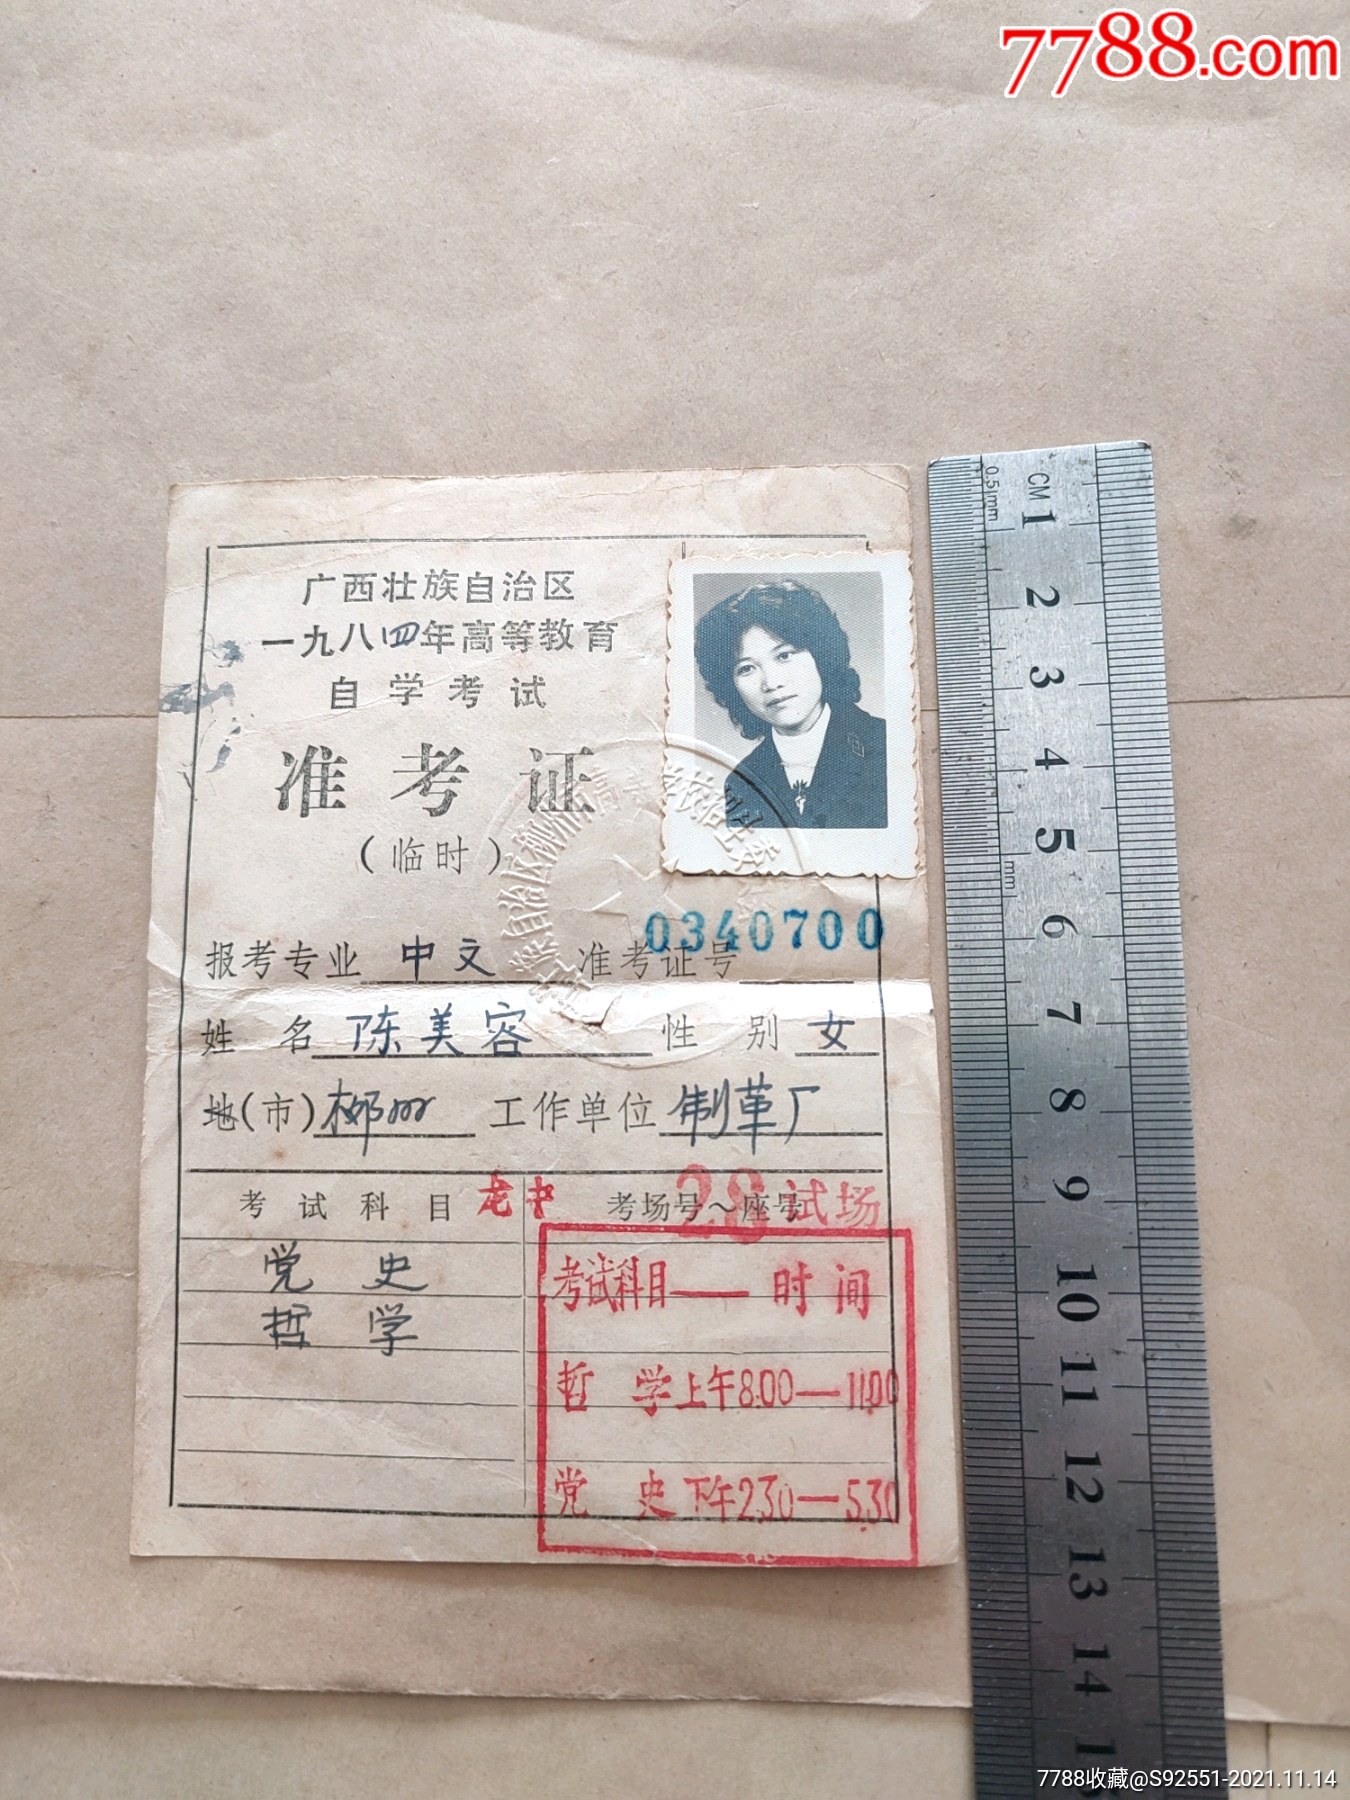 7788.com
广西壮族自治区
一九八四年高等教育
自学考试
准考证
(临时)
0340700
报考专业 中文 准考证号
姓名 陈美容 性别 女
地(市) 柳州 工作单位 制革厂
考试科目 考场号～座号
28试场
党史
哲学
考试科目——时间
哲学上午8.00—11.00
党史下午2.30—5.30
CM
0.5mm
1
2
3
4
5
mm
6
7
8
9
10
11
12
13
14
7788收藏@S92551-2021.11.14